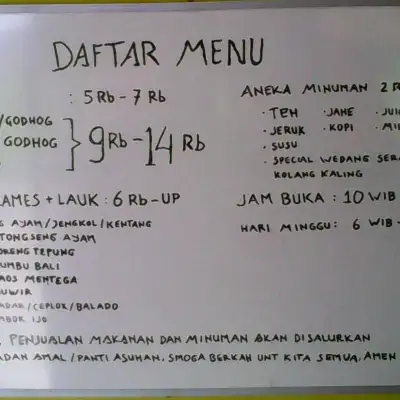 DAFTAR MENU
: 5 Rb - 7 Rb
/GODHOG
GODHOG
} 9 Rb - 14 Rb
RAMES + LAUK : 6 Rb - UP
AYAM/JENGKOL/KENTANG
TONGSENG AYAM
GORENG TEPUNG
BUMBU BALI
SAOS MENTEGA
SUWIR
DADAR/CEPLOK/BALADO
LOMBOK IJO
ANEKA MINUMAN 2 R
· TEH · JAHE · JUI
· JERUK · KOPI · MI
· SUSU
· SPECIAL WEDANG SER
KOLANG KALING
JAM BUKA : 10 WIB
HARI MINGGU : 6 WIB -
PENJUALAN MAKANAN DAN MINUMAN AKAN DISALURKAN
BADAN AMAL / PANTI ASUHAN. SMOGA BERKAH UNT KITA SEMUA, AMEN